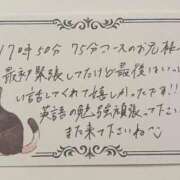 17時50分 75分コースのお兄様
最初緊張してたけど最後はいっぱ
い話してくれて嬉しかったです!!
英語の勉強頑張って下さい
また来て下さいね